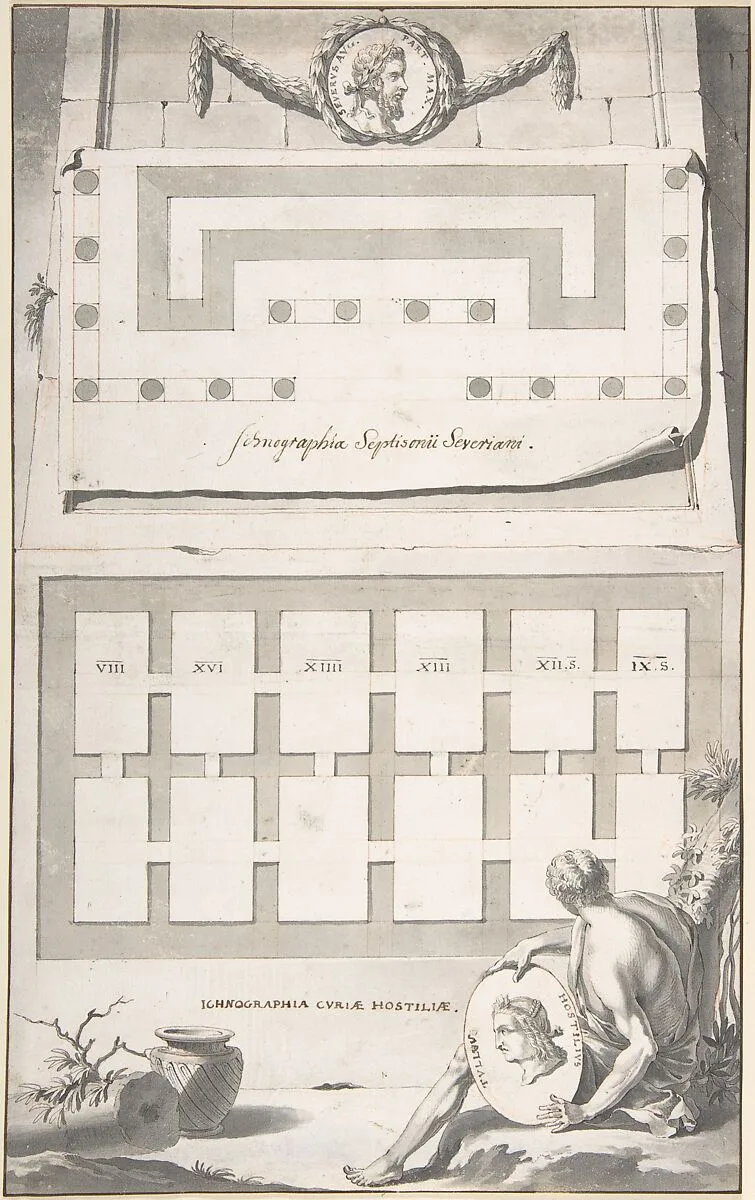 SEVERUS AUG. PART. MAX.
Ichnographia Septisonii Severiani.
V̅I̅I̅I̅ X̅V̅I̅ X̅I̅I̅I̅I̅ X̅I̅I̅I̅ X̅I̅I̅.S̅. I̅X̅.S̅.
ICHNOGRAPHIA CVRIÆ HOSTILIÆ.
TVLLVS HOSTILIVS